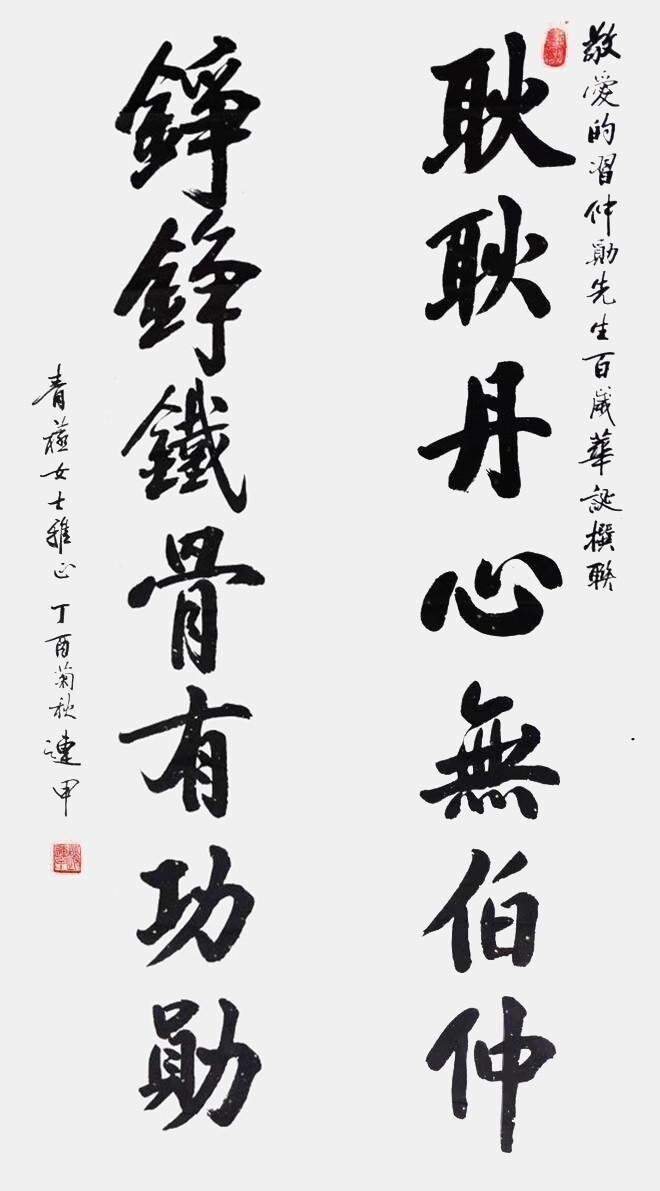 敬愛的習仲勛先生百歲華誕撰聯
耿耿丹心無伯仲
錚錚鐵骨有功勛
青蓮女士雅正 丁酉菊秋 連甲